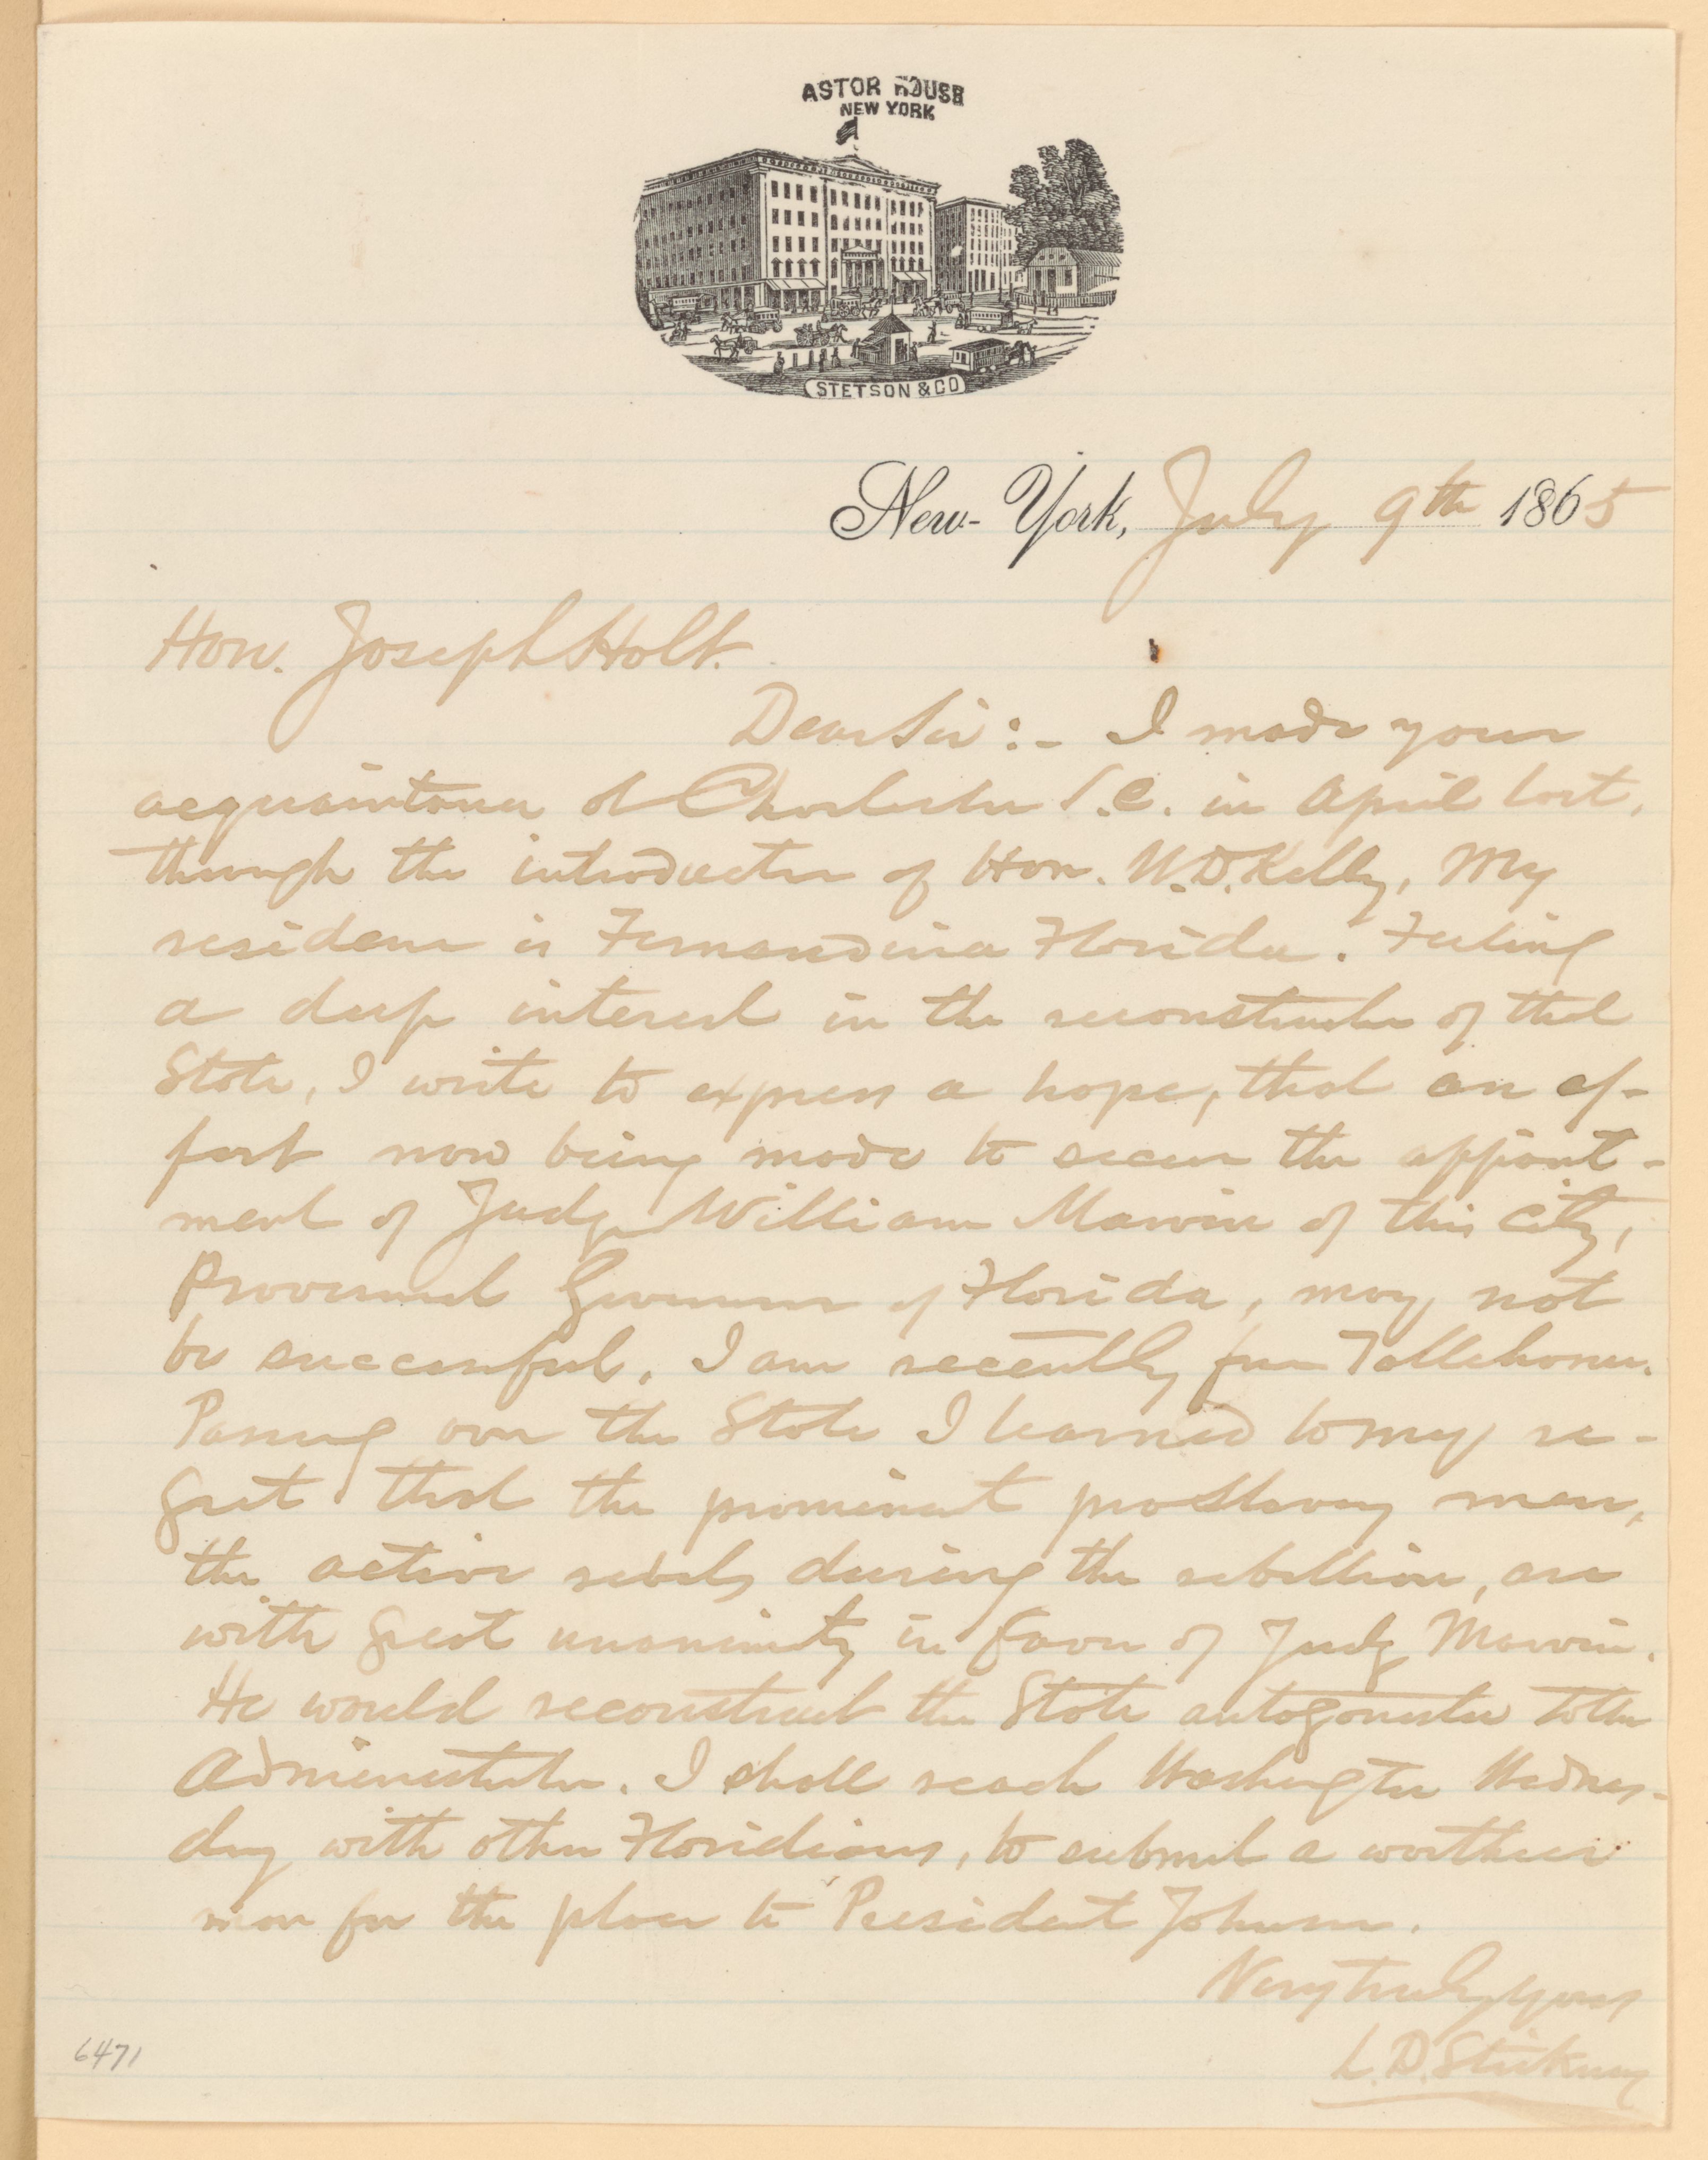 ASTOR HOUSE
NEW YORK
STETSON & CO
New-York, July 9th 1865
Hon. Joseph Holt.
Dear Sir :- I made your
acquaintance at Charleston S.C. in April last,
through the introduction of Hon. W.D. Kelly, My
residence is Fernandina Florida. Feeling
a deep interest in the reconstruction of that
State, I write to express a hope, that an ef-
fort now being made to secure the appoint-
ment of Judge William Marvin of this City,
Provisional Governor of Florida, may not
be successful. I am recently from Tallahassee.
Passing over the State I learned to my re-
gret that the prominent proslavery men,
the active rebels during the rebellion, are
with great unanimity in favor of Judge Marvin.
He would reconstruct the State antagonistic to the
Administration. I shall reach Washington Wednes-
day with other Floridians, to submit a worthier
man for the place to President Johnson.
Very truly yours
L. D. Stickney
6471